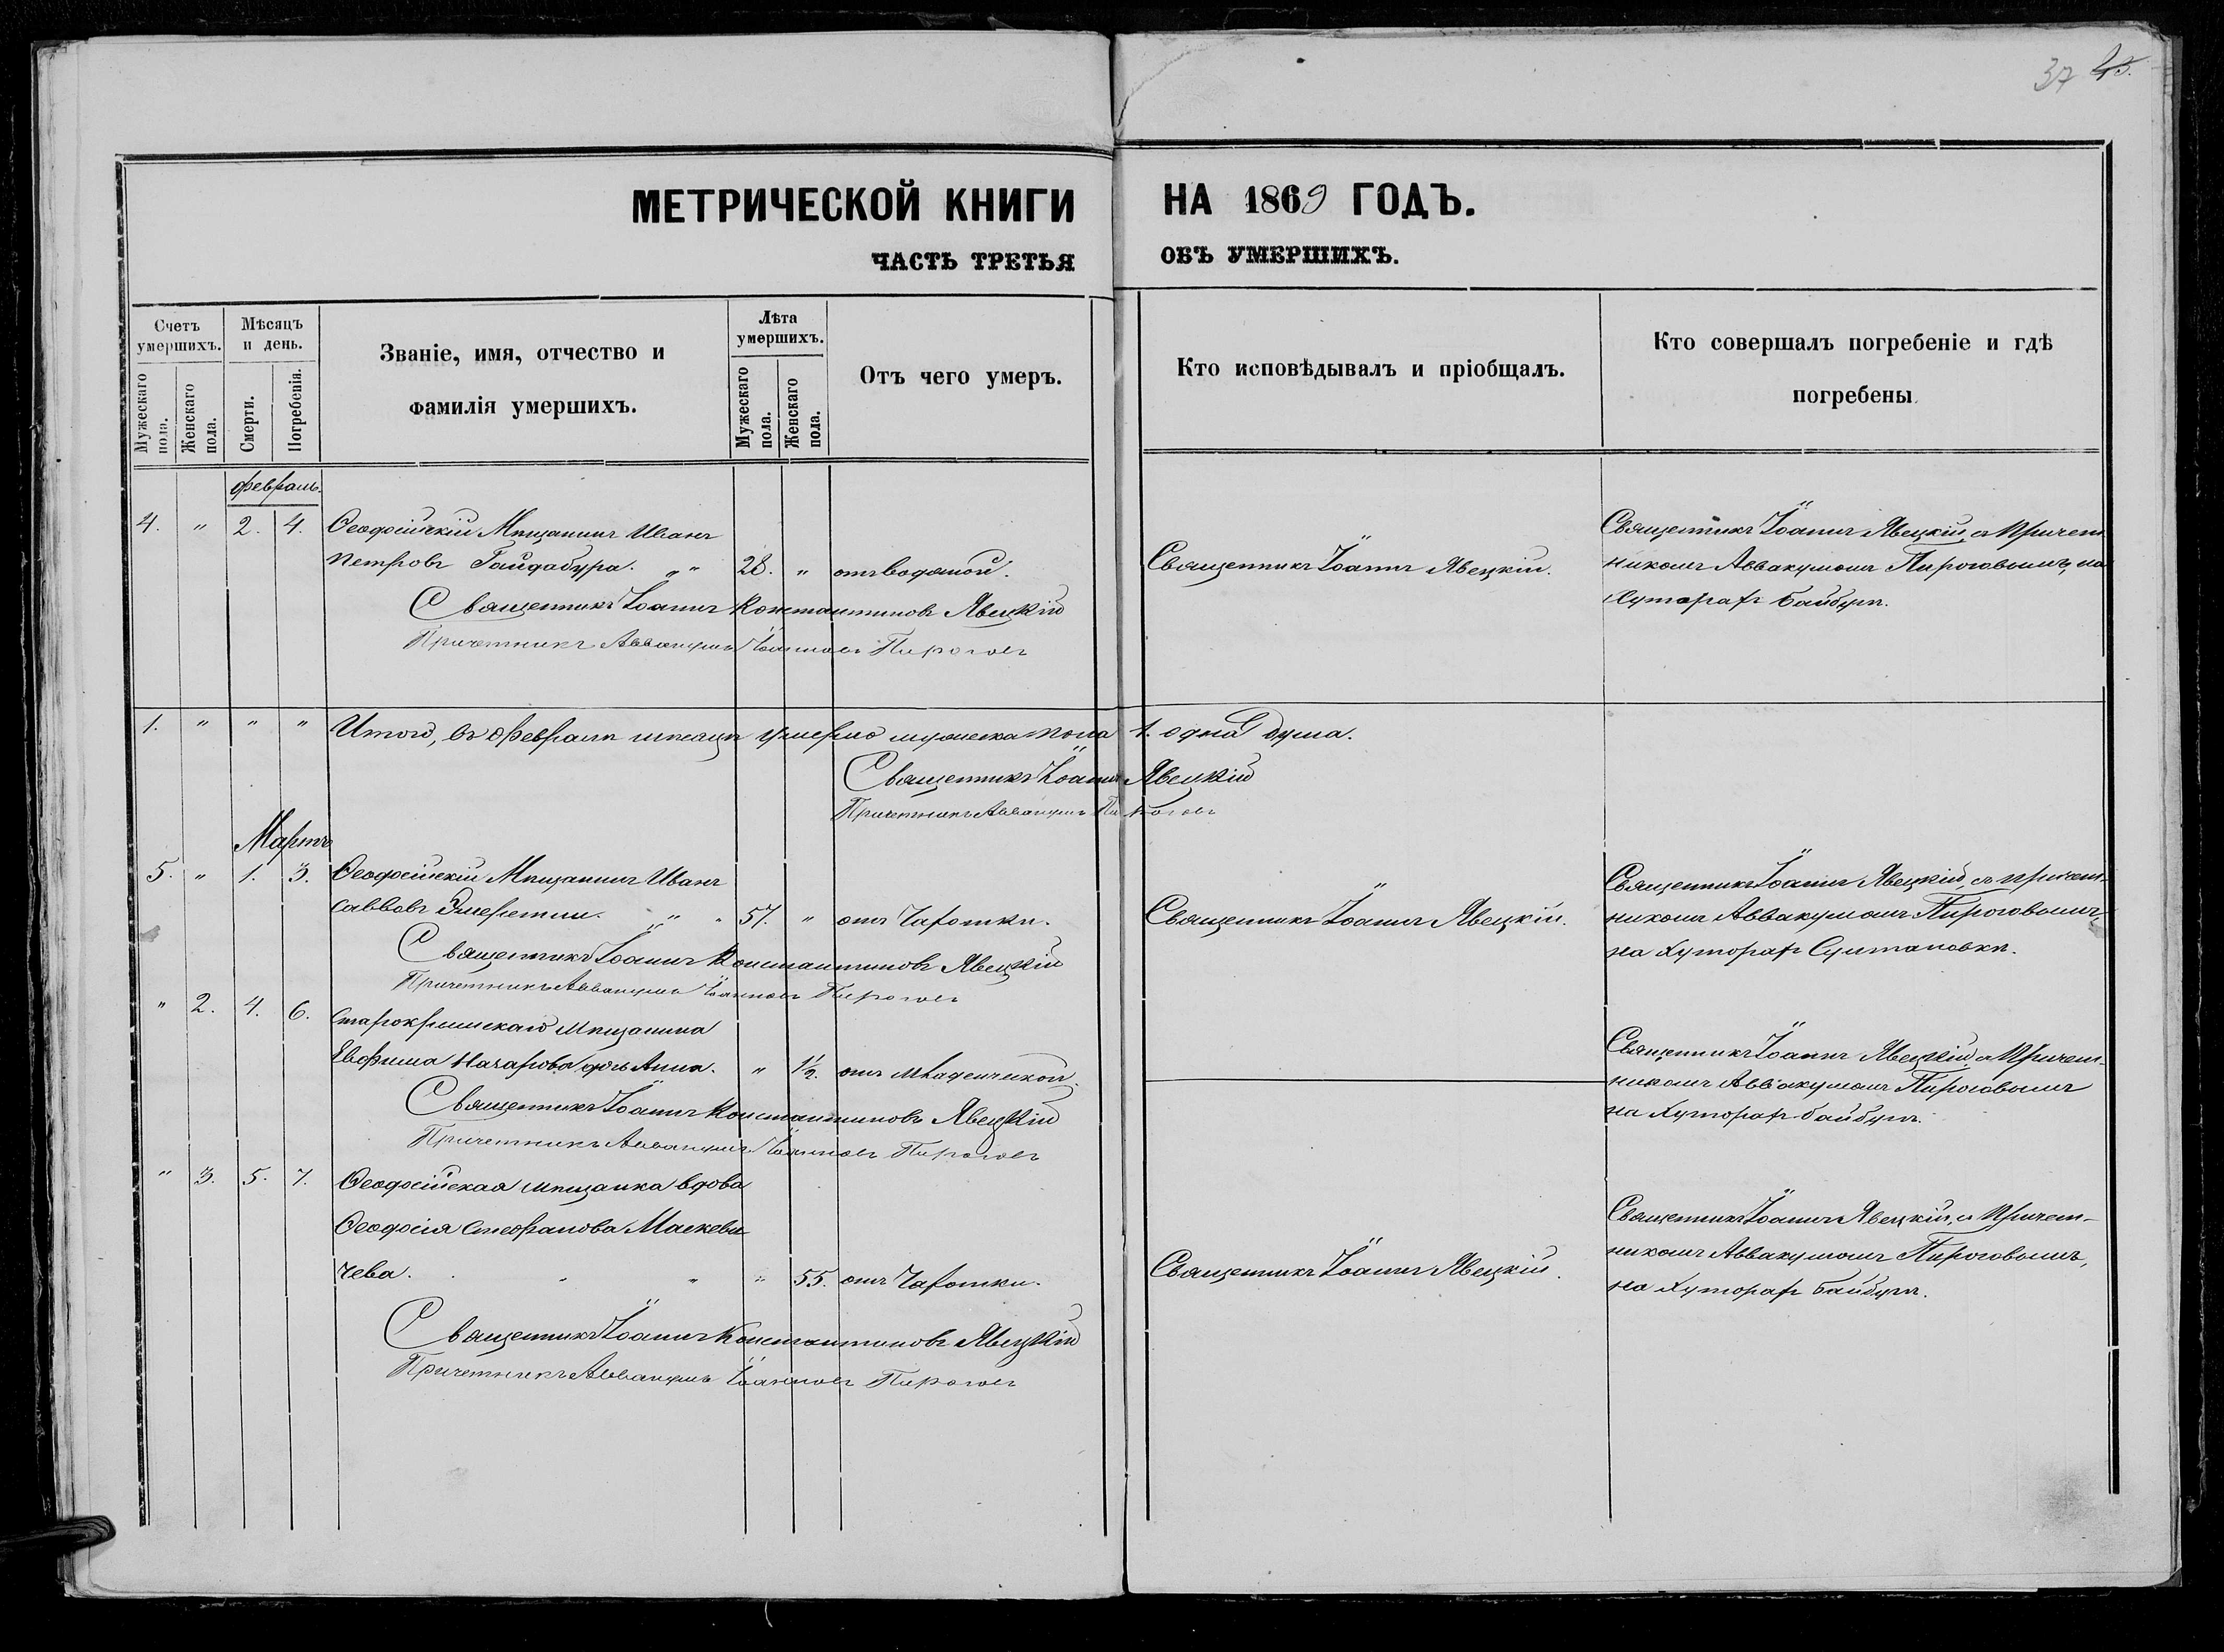 37 45.
МЕТРИЧЕСКОЙ КНИГИ НА 1869 ГОДЪ.
ЧАСТЬ ТРЕТЬЯ ОБЪ УМЕРШИХЪ.
Счетъ умершихъ.
Мужескаго пола.
Женскаго пола.
Мѣсяцъ и день.
Смерти.
Погребенія.
Званіе, имя, отчество и
фамилія умершихъ.
Лѣта умершихъ.
Мужескаго пола.
Женскаго пола.
Отъ чего умеръ.
Кто исповѣдывалъ и пріобщалъ.
Кто совершалъ погребеніе и гдѣ
погребены
февраль.
4. " 2. 4. Ѳеодосійскій Мѣщанинъ Иванъ
Петровъ Гайдабура. " " 28. " отъ водяной.
Священникъ Іоаннъ Явецкій.
Священникъ Іоаннъ Явецкій, съ Причет
никомъ Аввакумомъ Пироговымъ, на
Хуторахъ Байбуги.
Священникъ Іоаннъ Константиновъ Явецкій
Причетникъ Аввакумъ Іоанновъ Пироговъ
1. " " " Итого, въ Февралѣ мѣсяцѣ умерло мужеска пола 1. одна душа.
Священникъ Іоаннъ Явецкій
Причетникъ Аввакумъ Пироговъ
Мартъ
5. " 1. 3. Ѳеодосійскій Мѣщанинъ Иванъ
Саввовъ " " 57. " отъ Чахотки.
Священникъ Іоаннъ Явецкій.
Священникъ Іоаннъ Явецкій, съ причет-
никомъ Аввакумомъ Пироговымъ,
на Хуторахъ Султановки.
Священникъ Іоаннъ Константиновъ Явецкій
Причетникъ Аввакумъ Іоанновъ Пироговъ
" 2. 4. 6. Старокрымскаго Мѣщанина
Евфима Назарова дочь Анна. " 1/2. отъ младенческой.
Священникъ Іоаннъ Явецкій съ Причет-
никомъ Аввакумомъ Пироговымъ
на Хуторахъ Байбуги.
Священникъ Іоаннъ Константиновъ Явецкій
Причетникъ Аввакумъ Іоанновъ Пироговъ
" 3. 5. 7. Ѳеодосійская мѣщанка вдова
Ѳеодосія Стефанова Маскеви
чева. " " " 55. отъ Чахотки.
Священникъ Іоаннъ Явецкій.
Священникъ Іоаннъ Явецкій, съ Причет-
никомъ Аввакумомъ Пироговымъ,
на Хуторахъ Байбуги.
Священникъ Іоаннъ Константиновъ Явецкій
Причетникъ Аввакумъ Іоанновъ Пироговъ